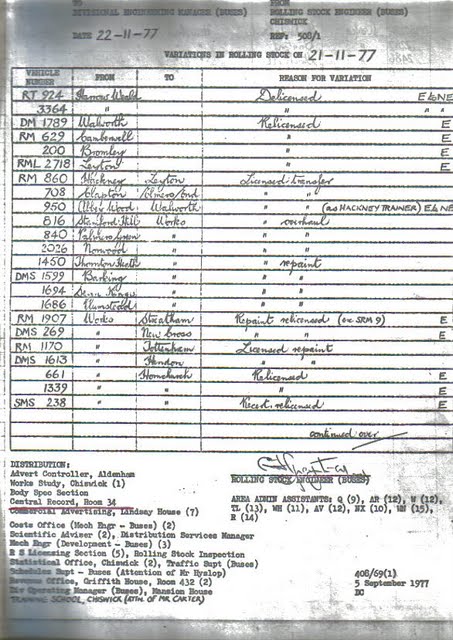 TO
DIVISIONAL ENGINEERING MANAGER (BUSES)
FROM
ROLLING STOCK ENGINEER (BUSES)
CHISWICK
DATE 22-11-77
REF: 508/1
VARIATIONS IN ROLLING STOCK ON 21-11-77
VEHICLE NUMBER FROM TO REASON FOR VARIATION
RT 924 Harrow Weald Delicensed E&NE
3364 " " " "
DM 1789 Walworth Relicensed E
RM 629 Camberwell " E
200 Bromley " E
RML 2718 Leyton " E
RM 860 Hackney Leyton Licensed transfer
708 Clapton Elmers End " "
950 Abbey Wood Walworth " " (as HACKNEY TRAINER) E&NE
816 Stamford Hill Works " overhaul
840 Palmers Green " " "
2026 Norwood " " "
1450 Thornton Heath " " repaint
DMS 1599 Barking " " "
1694 " " "
1686 Plumstead " " "
RM 1907 Works Streatham Repaint relicensed (ex SRM 9) E
DMS 269 " New Cross " " E
RM 1170 " Tottenham Licensed repaint
DMS 1613 " Hendon " "
661 " Hornchurch Relicensed E
1339 " " " E
SMS 238 " " Recert. relicensed E
continued over
DISTRIBUTION:
Advert Controller, Aldenham
Works Study, Chiswick (1)
Body Spec Section
Central Record, Room 34
Commercial Advertising, Lindsay House (7)
Costs Office (Mech Engr - Buses) (2)
Scientific Adviser (2), Distribution Services Manager
Mech Engr (Development - Buses) (3)
R S Licensing (5), Rolling Stock Inspection
Statistical Office, Chiswick (2), Traffic Supt (Buses)
Schedules Supt - Buses (Attention of Mr Hyslop)
Revenue Office, Griffith House, Room 432 (2)
Div Operating Manager (Buses), Mansion House
TRAINING SCHOOL, CHISWICK (ATTN. OF MR CARTER)
ROLLING STOCK ENGINEER (BUSES)
AREA ADMIN ASSISTANTS: Q (9), AR (12), W (12),
TL (13), WH (11), AV (12), NX (10), (15),
R (14)
408/69(1)
5 September 1977
DC